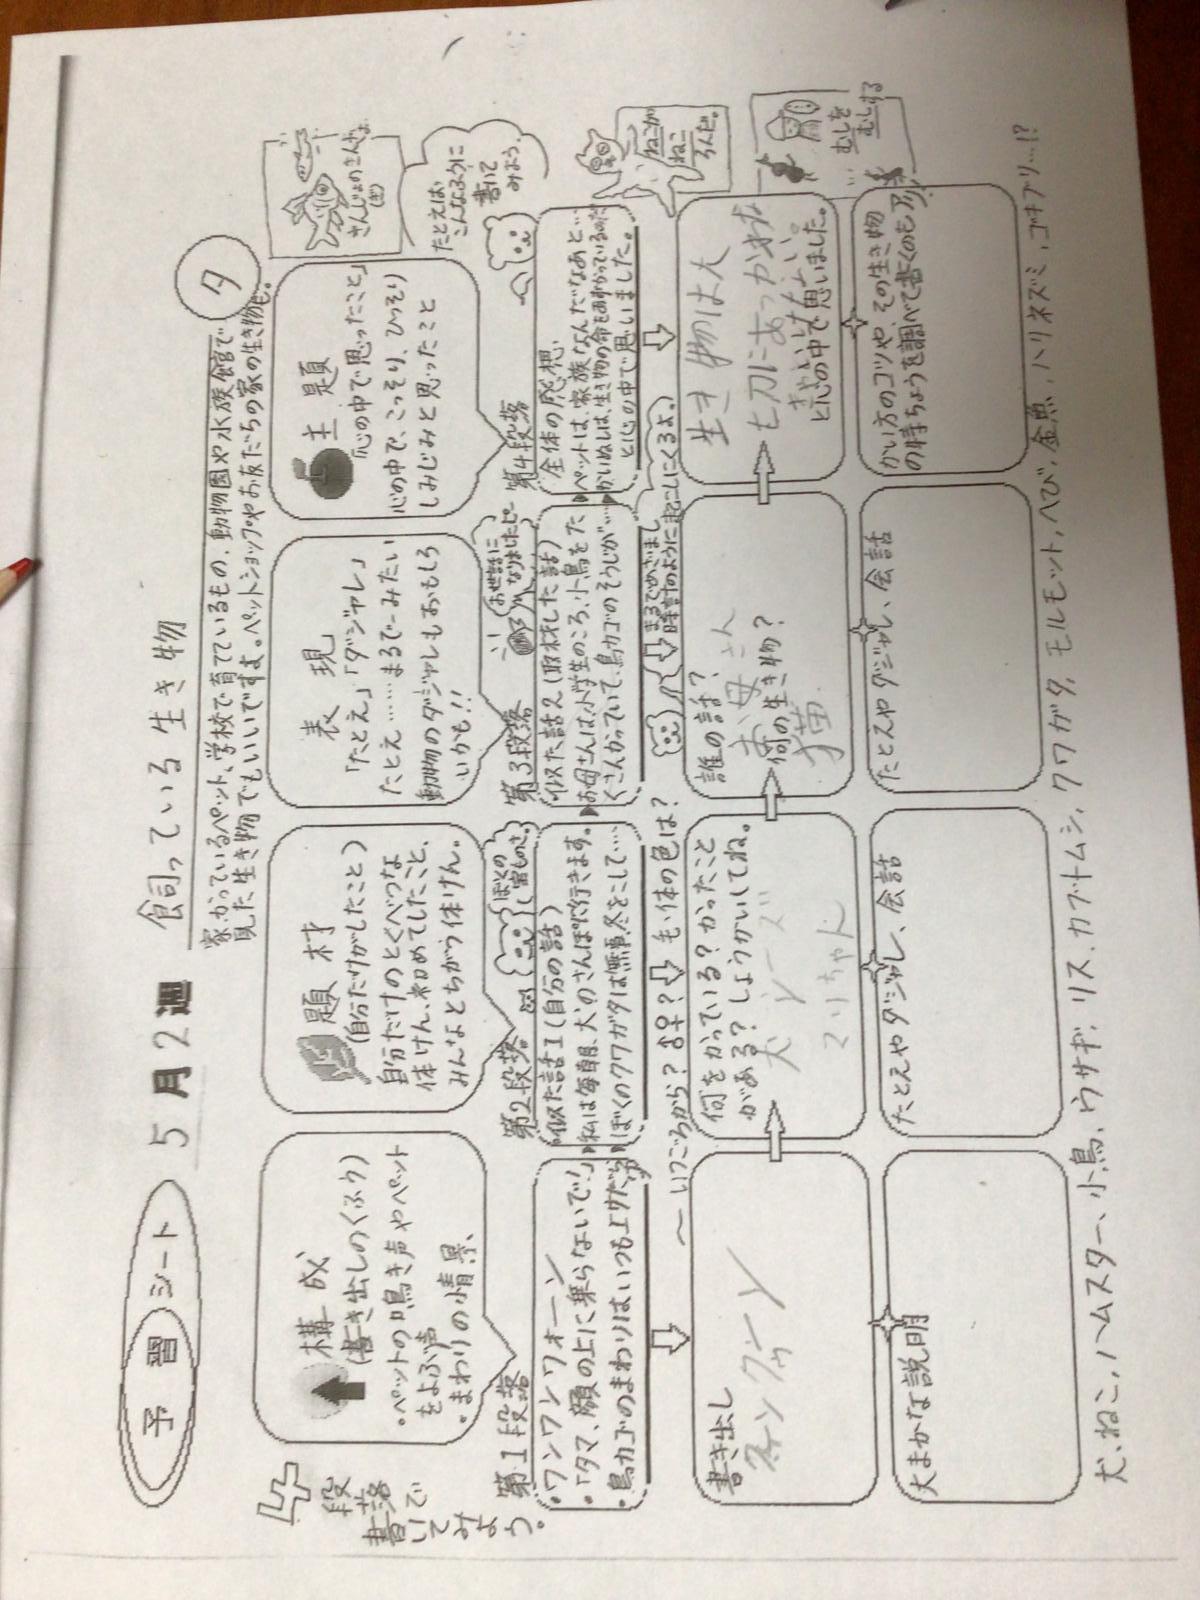 予習シート
5月2週
飼っている生き物
家でかっているペット、学校で育てているもの、動物園や水族館で
見た生き物でもいいですよ。ペットショップやお友だちの家の生き物も。
タ
さんじょのさんけよ
たとえば
こんなように
書いて
みよう。
4
段落で
書いてみよう。
構成
(書き出しのくふう)
・ペットの鳴き声やペット
をよぶ声
・まわりの情景、
題材
(自分だけがしたこと)
自分だけのとくべつな
体けん、初めてしたこと、
みんなとちがう体けん。
表現
「たとえ」「ダジャレ」
たとえ……まるで〜みたい
動物のダジャレもおもしろ
いかも!!
主題
「心の中で思ったこと」
心の中で、こっそり、ひっそり
しみじみと思ったこと
第1段落
・ワンワンワォーン
・「タマ、顔の上に乗らないで!」
・鳥カゴのまわりはいつも
第2段落
・似た話1(自分の話)
▶私は毎朝、犬のさんぽに行きます。
▶ぼくのクワガタは無事、冬をこして…
第3段落
お世話に
なりましたピ
・似た話2(取材した話)
▶お母さんは小学生のころ、小鳥をた
くさんかっていて、鳥カゴのそうじが…
第4段落
全体の感想、
▶ペットは、家族なんだなあと…
▶かいぬしは、生き物の命をあずかっているのだ
と心の中で思いました。
ねこが
ねこ
ろんだ。
むしを
むしする
〜いつごろから?♂♀?
毛、体の色は?
まるでめざまし
時計のように起こしにくるよ。
書き出し
何をかっている?かったこと
がある?しょうかいしてね。
犬
マリちゃん
誰の話?
お母さん
何の生き物?
猫
生き物は大
七刀にあつかわな
きゃいけない。
と心の中で思いました。
大まかな説明
たとえやダジャレ、会話
たとえやダジャレ、会話
かい方のコツや、その生き物
の特ちょうを調べて書くのもアリ
犬、ねこ、ハムスター、小鳥、ウサギ、リス、カブトムシ、クワガタ、モルモット、へび、金魚、ハリネズミ、ゴキブリ…!?